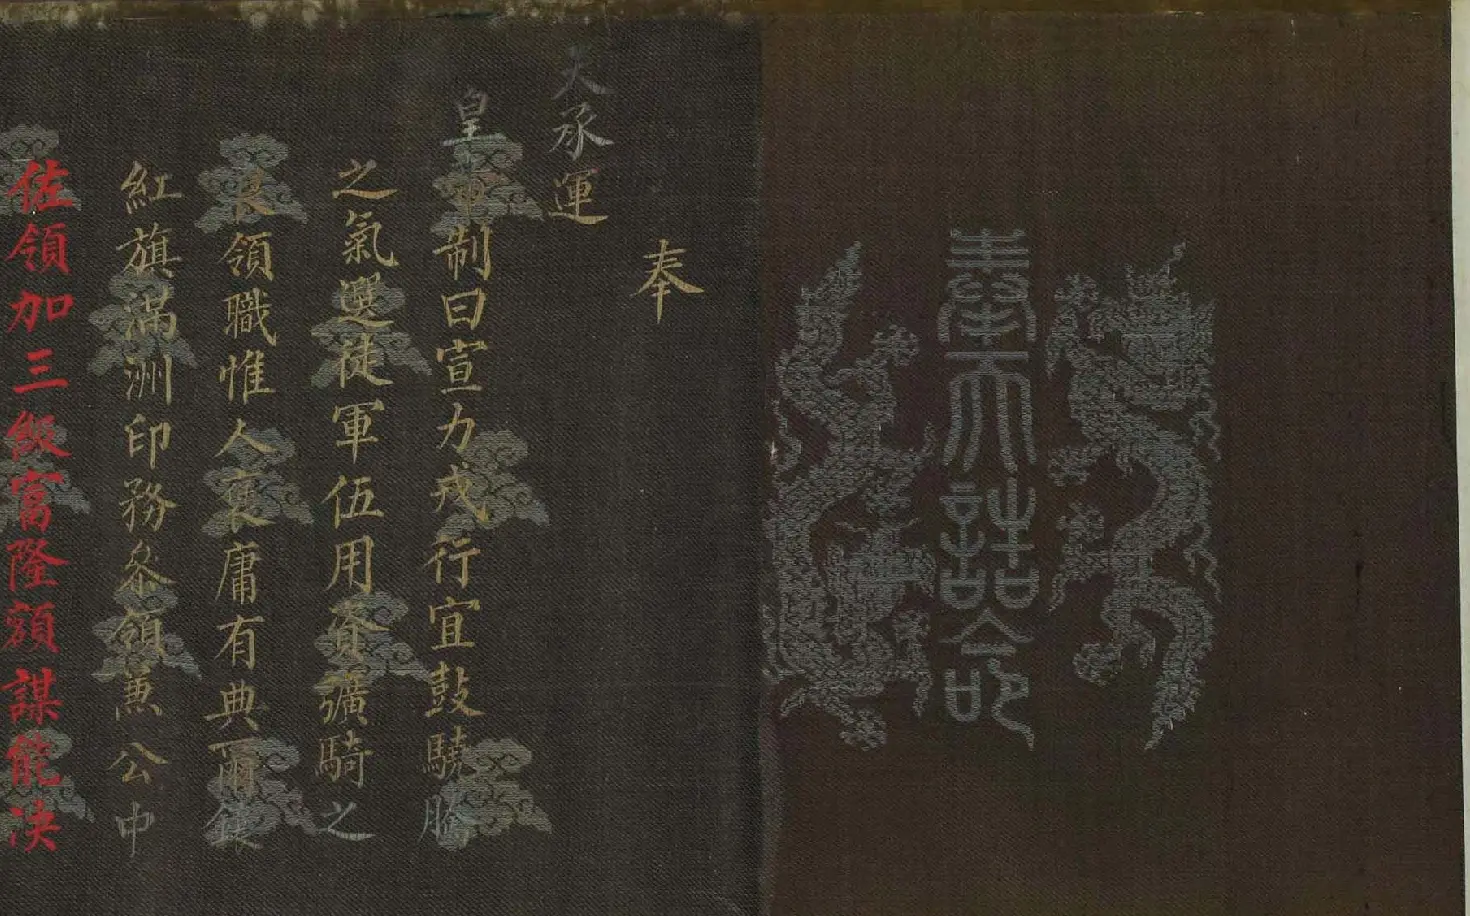 奉天誥命
奉
天承運
皇帝制曰宣力戎行宜鼓驍騰
之氣選徒軍伍用資彍騎之
良領職惟人褒庸有典爾鑲
紅旗滿洲印務叅領兼公中
佐領加三級富隆額謀能决